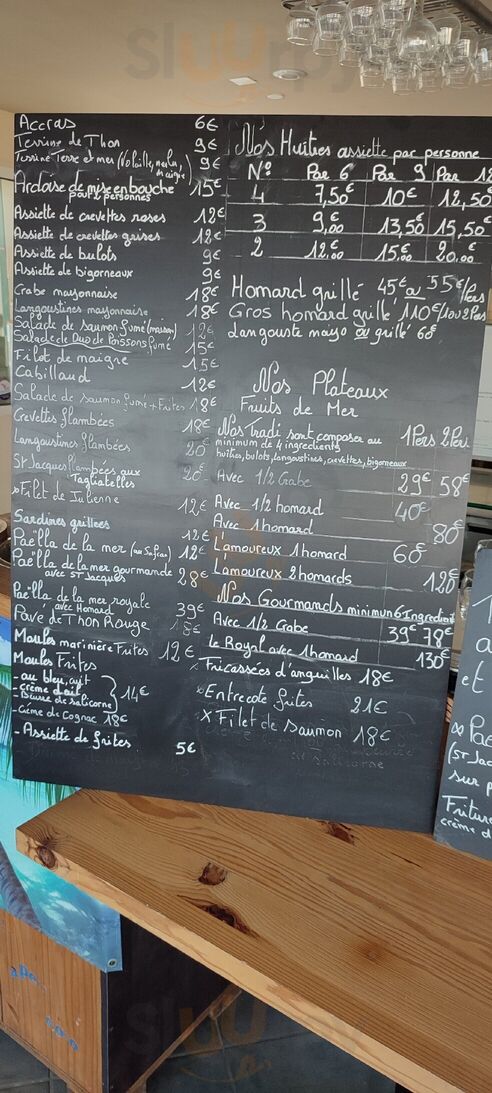 Accras 6€
Terrine de Thon 9€
Terrine Terre et mer (Volaille, merlu, maigre) 9€
Ardoise de mise en bouche 15€
pour 2 personnes
Assiette de crevettes roses 12€
Assiette de crevettes grises 12€
Assiette de bulots 9€
Assiette de bigorneaux 9€
Crabe mayonnaise 18€
Langoustines mayonnaise 18€
Salade de saumon fumé (maison) 12€
Salade de Duo de Poissons fumé 15€
Filet de maigre 15€
Cabillaud 12€
Salade de saumon fumé + Frites 18€
Crevettes flambées 18€
Langoustines flambées 20€
St Jacques flambées aux 20€
Tagliatelles
Filet de Julienne 12€
Sardines grillées 12€
Paëlla de la mer (au Safran) 12€
Paëlla de la mer gourmande 28€
avec ST Jacques
Paëlla de la mer royale 39€
avec Homard
Pavé de Thon Rouge 18€
Moules marinière Frites 12€
Moules Frites
- au bleu, ait
- crème d'ail 14€
- Beurre de salicorne
- Crème de Cognac 18€
- Assiette de frites 5€
Nos Huitres assiette par personne
N° Par 6 Par 9 Par 12
4 7,50€ 10€ 12,50€
3 9,00€ 13,50€ 15,50€
2 12,00€ 15,00€ 20,00€
Homard grillé 45€ ou 55€/Pers
Gros homard grillé 110€/1 ou 2 Pers
Langouste mayo ou grillé 68€
Nos Plateaux
Fruits de Mer
Nos Tradi sont composer au 1Pers 2Per
minimum de 4 ingredients
huîtres, bulots, langoustines, crevettes, bigorneaux
Avec 1/2 Crabe 29€ 58€
Avec 1/2 homard 40€
Avec 1 homard 80€
L'amoureux 1 homard 60€
L'amoureux 2 homards 120€
Nos Gourmands minimum 6 Ingredients
Avec 1/2 Crabe 39€ 78€
Le Royal avec 1 homard 130€
x Fricassées d'anguilles 18€
x Entrecote frites 21€
X Filet de saumon 18€
et
Pae
(ST Jac
sur p
Fritur
crème d
sluurpy